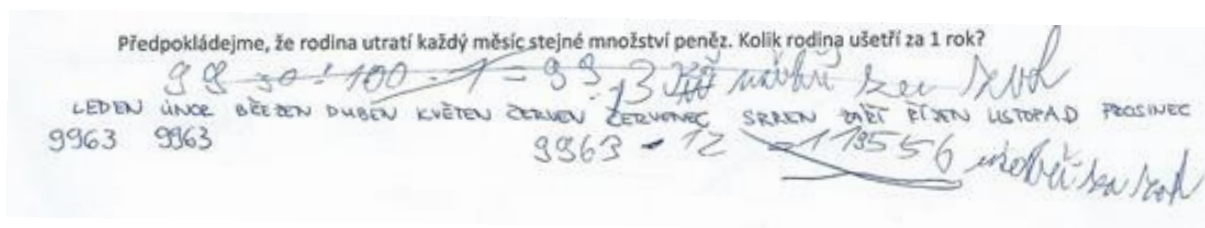 Předpokládejme, že rodina utratí každý měsíc stejné množství peněz. Kolik rodina ušetří za 1 rok?
99 30 : 100 · 1 = 99,3 Kč za rok
LEDEN ÚNOR BŘEZEN DUBEN KVĚTEN ČERVEN ČERVENEC SRPEN ZÁŘÍ ŘÍJEN LISTOPAD PROSINEC
9963 9963
9963 · 12 = 119556 ušetří za rok